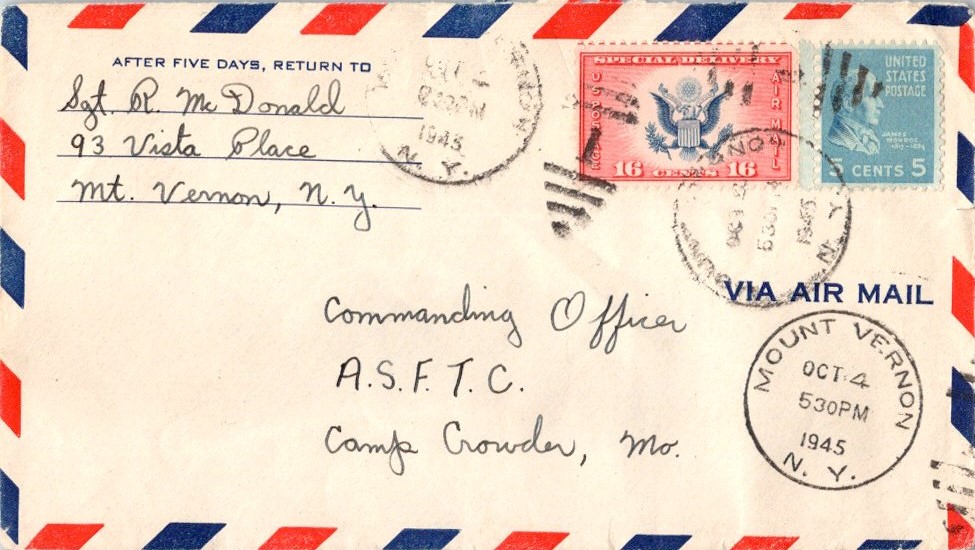 AFTER FIVE DAYS, RETURN TO
Sgt. R. McDonald
93 Vista Place
Mt. Vernon, N.Y.
1945
N. Y.
SPECIAL DELIVERY
AIR MAIL
16 CENTS 16
UNITED
STATES
POSTAGE
JAMES
MONROE
1817-1824
CENTS 5
530PM
1945
N. Y.
VIA AIR MAIL
Commanding Officer
A.S.F.T.C.
Camp Crowder, Mo.
MOUNT VERNON
OCT 4
530PM
1945
N. Y.